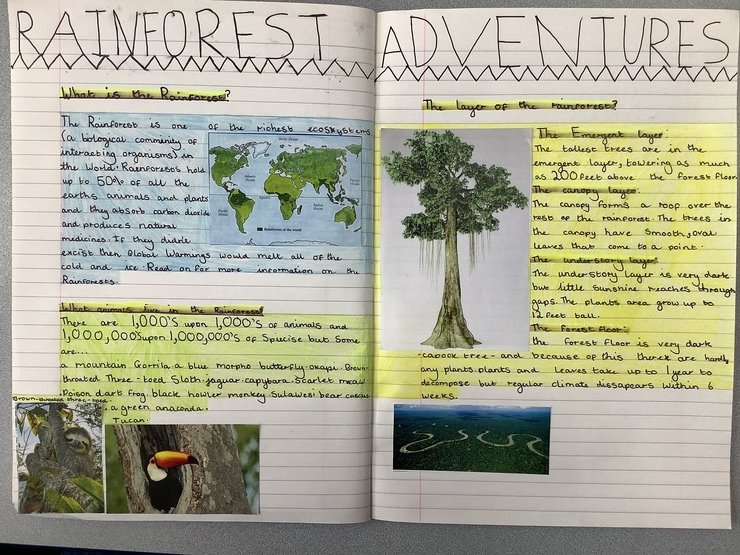 RAINFOREST ADVENTURES
What is the Rainforest?
The Rainforest is one of the richest ecosystems
(a biological commenity of
interacting organisms) in
the World. Rainforests hold
up to 50% of all the
earths animals and plants
and they absorb carbon dioxide
and produces natural
medicines. If they didnt
excist then Global Warmings would melt all of the
cold and ice. Read on for more information on the
Rainforests.
Arctic Ocean
Atlantic Ocean
Pacific Ocean
Indian Ocean
Pacific Ocean
Rainforests of the world
What animals live in the Rainforest?
There are 1,000's upon 1,000's of animals and
1,000,000's upon 1,000,000's of Specise but Some
are...
a mountain Gorrila.a blue morpho butterfly.okapi.Brown-
throated Three-toed Sloth.jaguar.capybara.Scarlet macaw
.Poison dart frog.black howler monkey.Sulawesi bear cuscus
Brown-throated three-toed
.a green anaconda.
Tucan.
The layer of the rainforest?
The Emergent layer:
The tallest trees are in the
emergent layer, towering as much
as 200 feet above the forest floor.
The canopy layer:
The canopy forms a roof over the
rest of the rainforest. The trees in
the canopy have smooth, oval
leaves that come to a point.
The understory layer:
The understory layer is very dark
but little sunshine reaches through
gaps. The plants area grow up to
12 feet tall.
The forest floor:
the forest floor is very dark
.capock tree-and because of this there are hardly
any plants.plants and leaves take up to 1 year to
decompose but regular climate dissapears within 6
weeks.